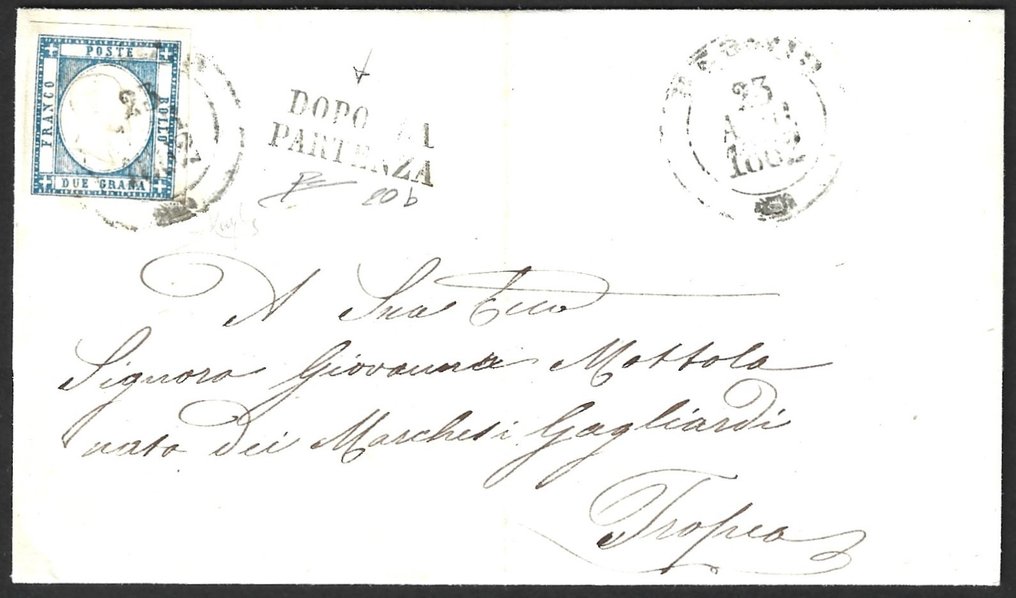 POSTE
FRANCO
BOLLO
DUE GRANA
23
DOPO LA
PARTENZA
20b
23
1862
A Sua Ecc
Signora Giovanna Mottola
nata dei Marchesi Gagliardi
Tropea